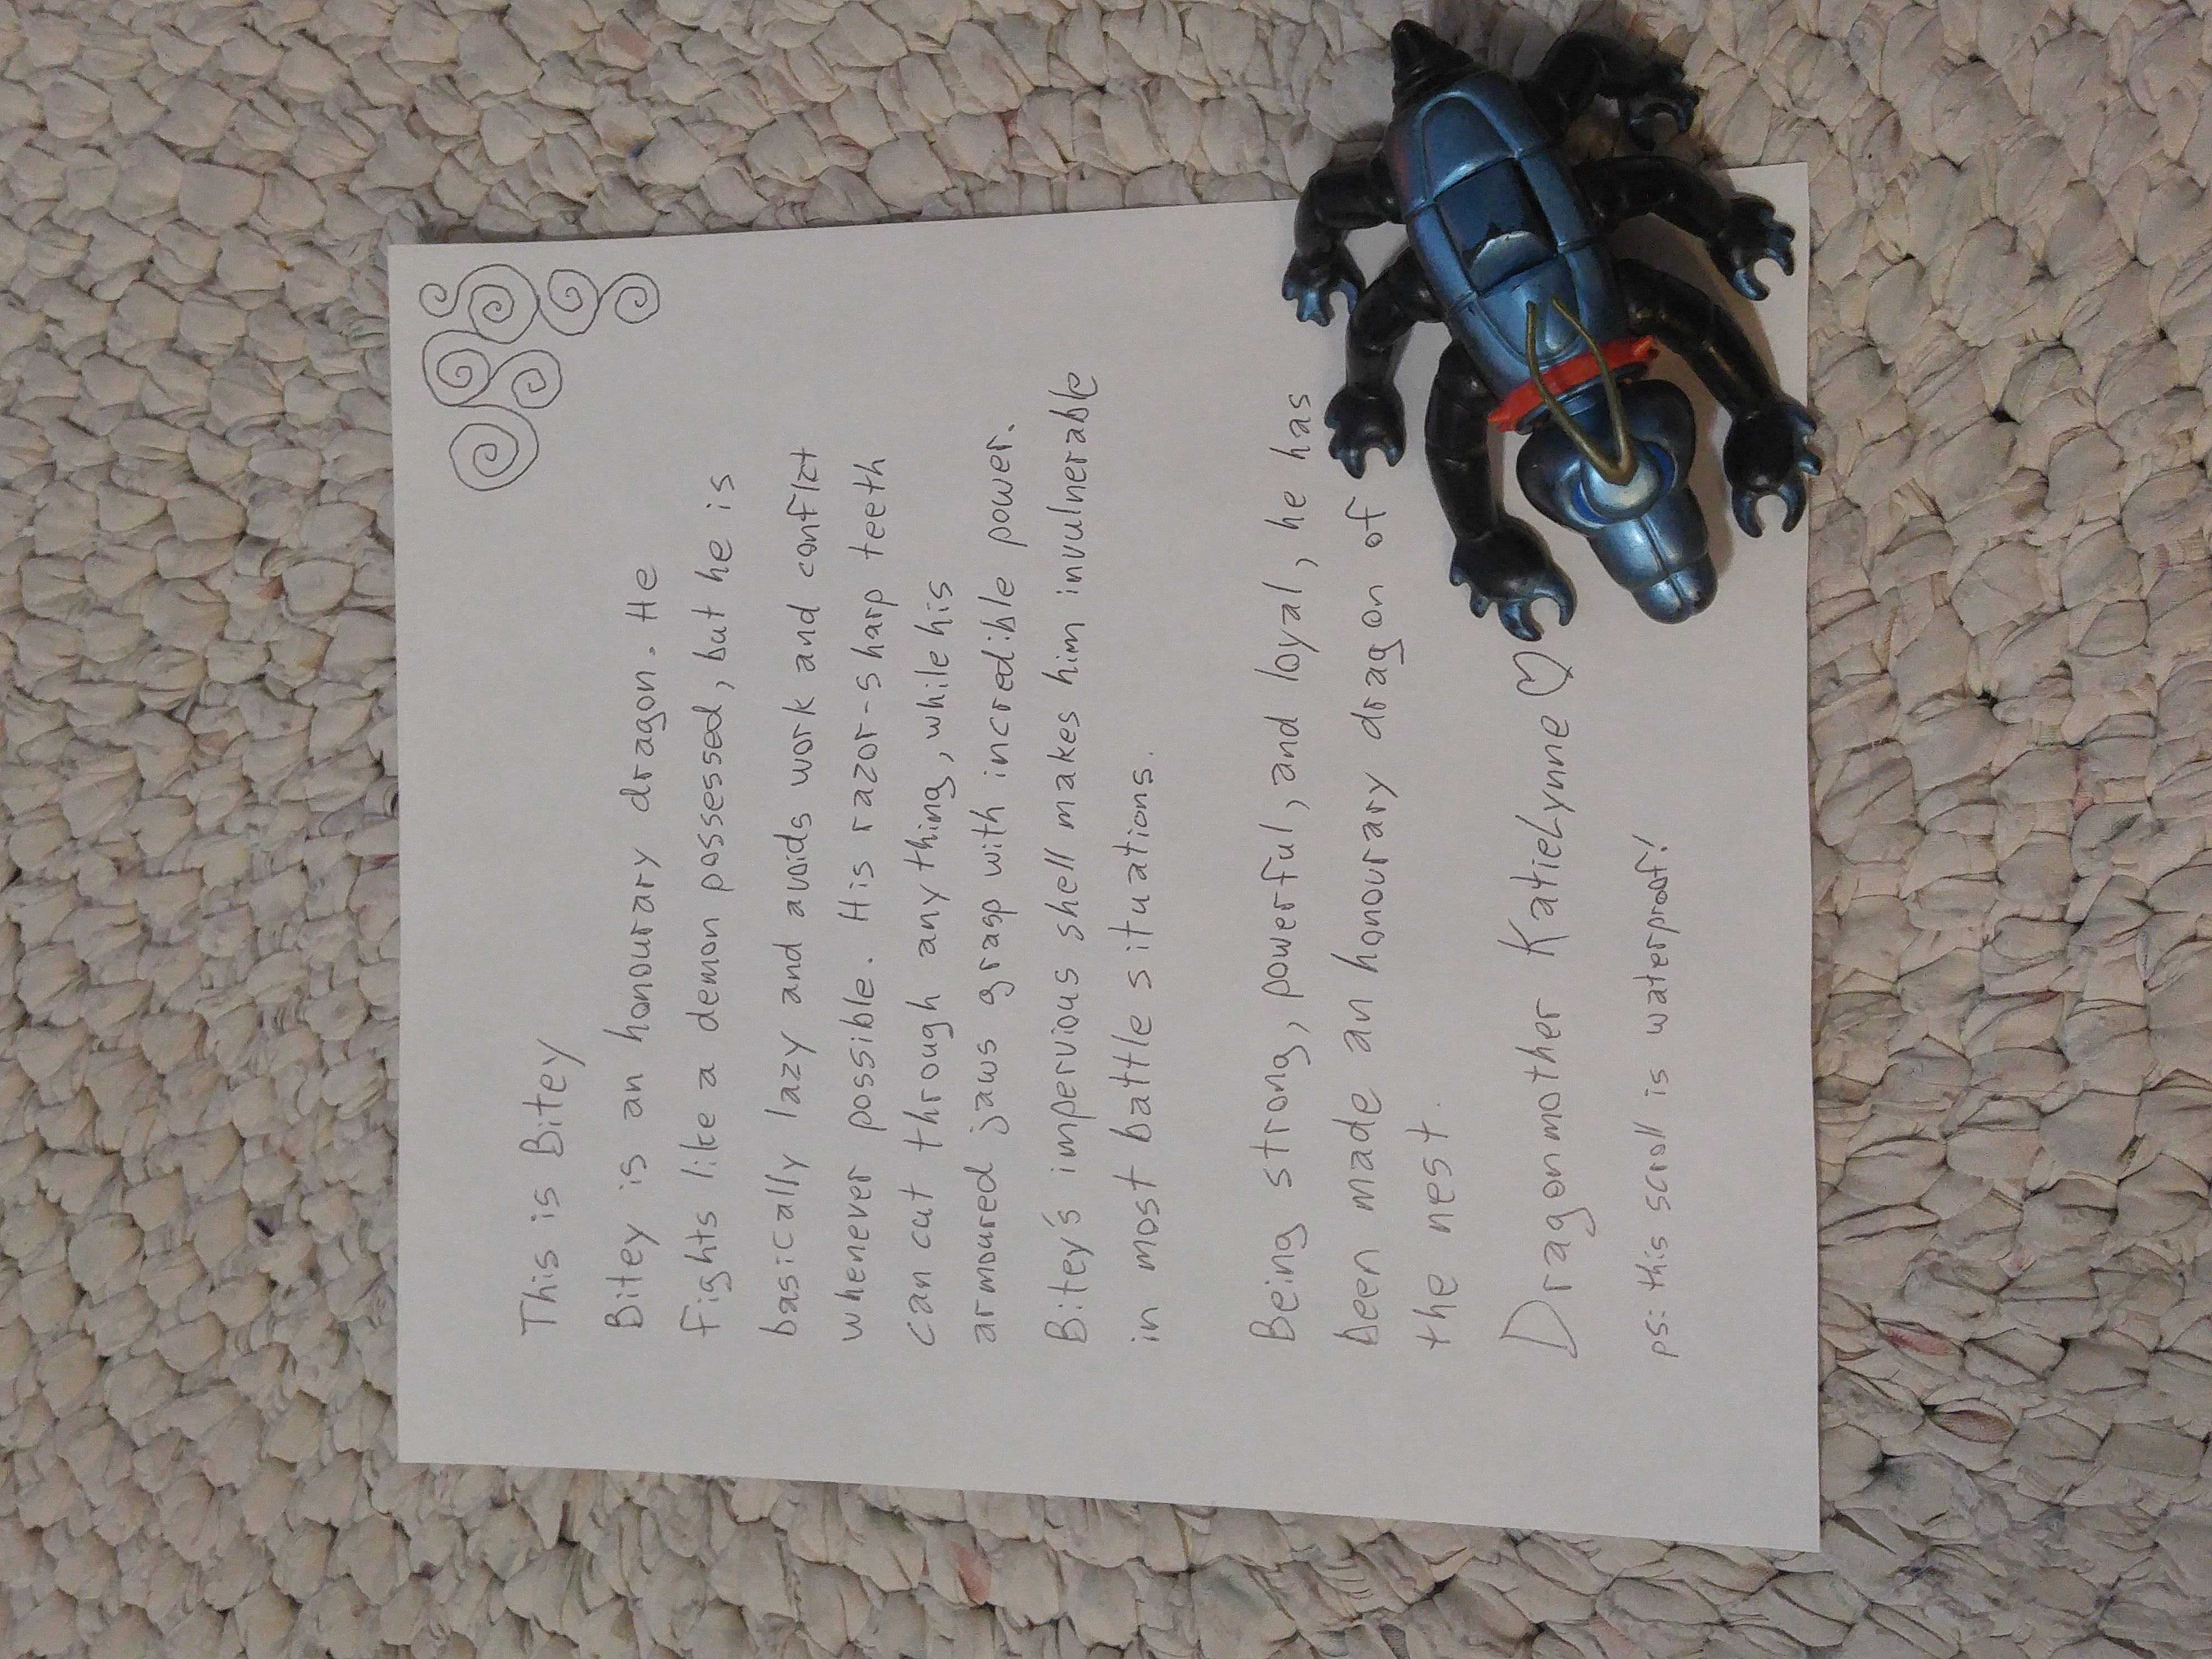 This is Bitey
Bitey is an honourary dragon. He
fights like a demon possessed, but he is
basically lazy and avoids work and conflict
whenever possible. His razor-sharp teeth
can cut through anything, while his
armoured jaws grasp with incredible power.
Bitey's impervious shell makes him invulnerable
in most battle situations.
Being strong, powerful, and loyal, he has
been made an honourary dragon of
the nest.
Dragonmother KatieLynne ♡
ps: this scroll is waterproof!